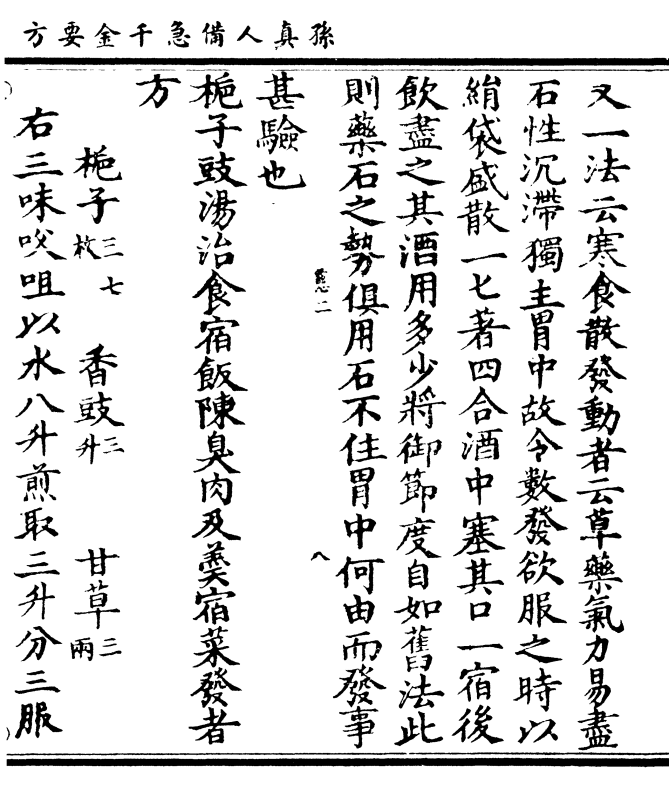 孫真人備急千金要方
又一法云寒食散發動者云草藥氣力易盡
石性沉滯獨主胃中故令數發欲服之時以
絹袋盛散一匕著四合酒中塞其口一宿後
飲盡之其酒用多少將御節度自如舊法此
則藥石之勢俱用石不住胃中何由而發事
甚驗也
梔子豉湯治食宿飯陳臭肉及羹宿菜發者
方
梔子三七枚 香豉三升 甘草三兩
右三味㕮咀以水八升煎取三升分三服
八